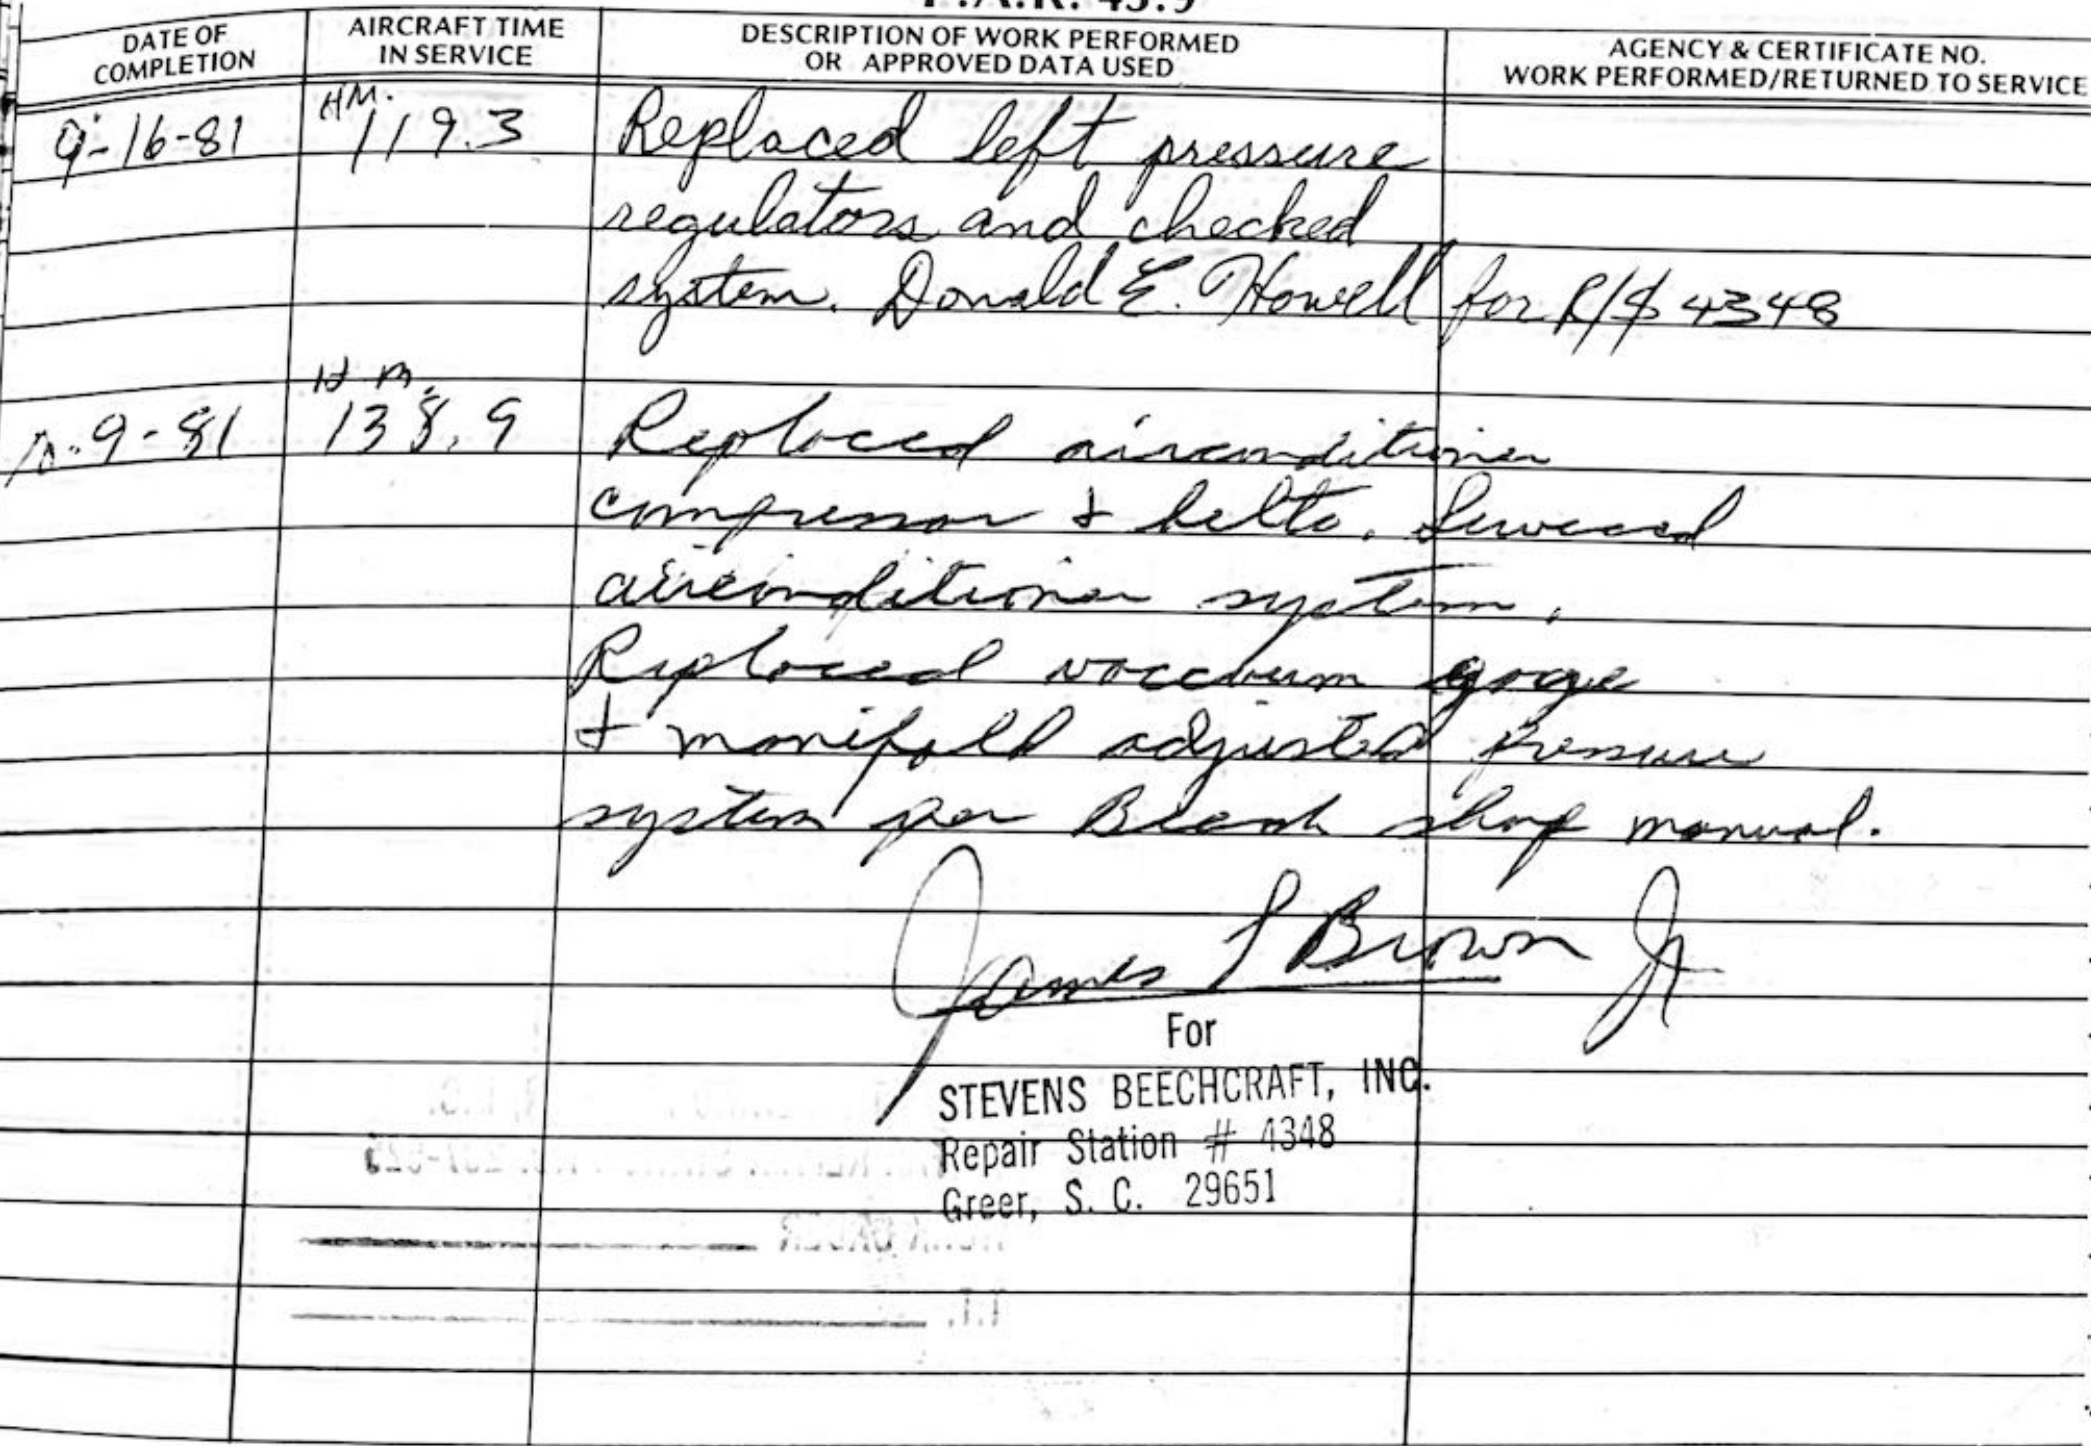 F.A.R. 43.9
DATE OF COMPLETION
AIRCRAFT TIME IN SERVICE
DESCRIPTION OF WORK PERFORMED OR APPROVED DATA USED
AGENCY & CERTIFICATE NO. WORK PERFORMED/RETURNED TO SERVICE
9-16-81 HM. 119.3 Replaced left pressure
regulators and checked
system. Donald E. Howell for R/S 4348
10-9-81 H M. 138.9 Replaced airconditioner
compressor & belts. Serviced
airconditioner system.
Replaced vaccum gage
& manifold adjusted pressure
system per Beech shop manual.
James L Brown Jr
For
STEVENS BEECHCRAFT, INC.
Repair Station # 4348
Greer, S. C. 29651